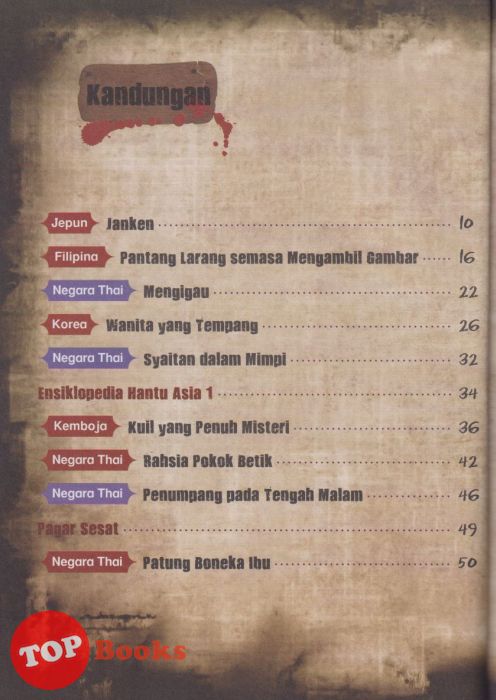 Kandungan
Jepun Janken 10
Filipina Pantang Larang semasa Mengambil Gambar 16
Negara Thai Mengigau 22
Korea Wanita yang Tempang 26
Negara Thai Syaitan dalam Mimpi 32
Ensiklopedia Hantu Asia 1 34
Kemboja Kuil yang Penuh Misteri 36
Negara Thai Rahsia Pokok Betik 42
Negara Thai Penumpang pada Tengah Malam 46
Pagar Sesat 49
Negara Thai Patung Boneka Ibu 50
TOP Books